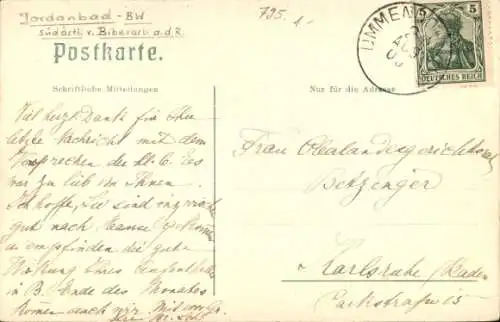 Jordanbad - BW
südöstl. v. Biberach a.d.R.
795.
1.-
UMMEN
5
DEUTSCHES REICH
Postkarte.
Schriftliche Mitteilungen
Nur für die Adresse
Viel herzl. Dank für Ihre
letzte Nachricht mit dem
Versprechen des
war zu lieb von Ihnen.
Ich hoffe, Sie sind inzwischen
gut nach Hause gekommen
u. empfinden die gute
Wirkung Ihres
in B. Ende des Monates
kommen auch wir. Mit
Frau Oberlandesgerichtsrat
Betzinger
Karlsruhe Baden
Parkstrasse 15